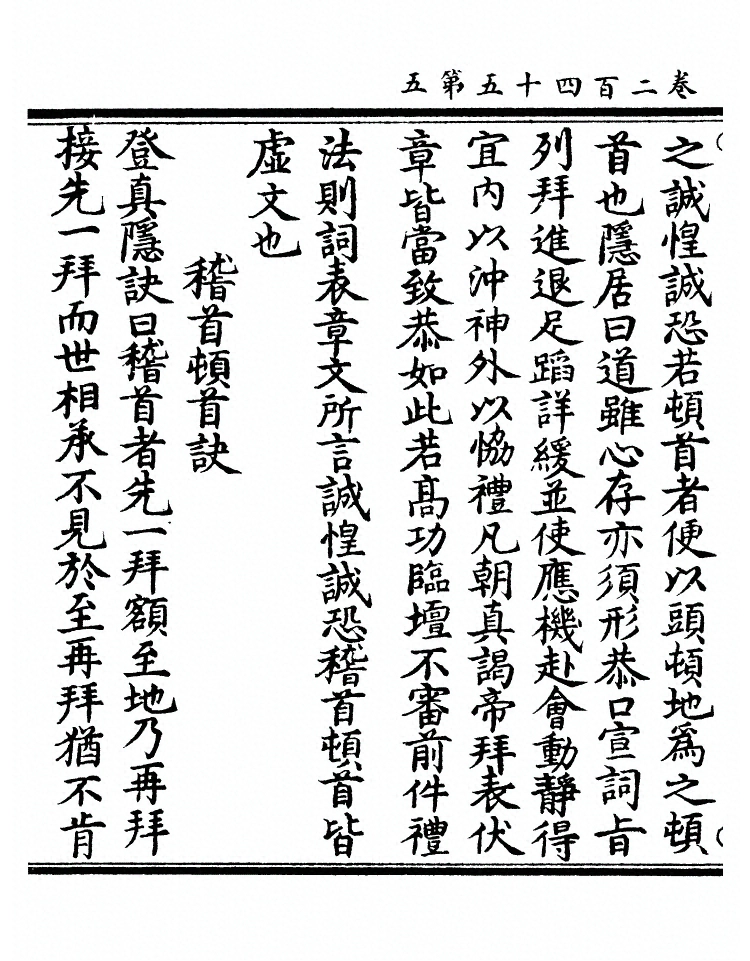 卷二百四十五第五
之誠惶誠恐若頓首者便以頭頓地爲之頓
首也隱居曰道雖心存亦須形恭口宣詞旨
列拜進退足蹈詳緩並使應機赴會動靜得
宜内以沖神外以恊禮凡朝真謁帝拜表伏
章皆當致恭如此若髙功臨壇不審前件禮
法則詞表章文所言誠惶誠恐稽首頓首皆
虛文也
稽首頓首訣
登真隱訣曰稽首者先一拜額至地乃再拜
接先一拜而世相承不見於至再拜猶不肯